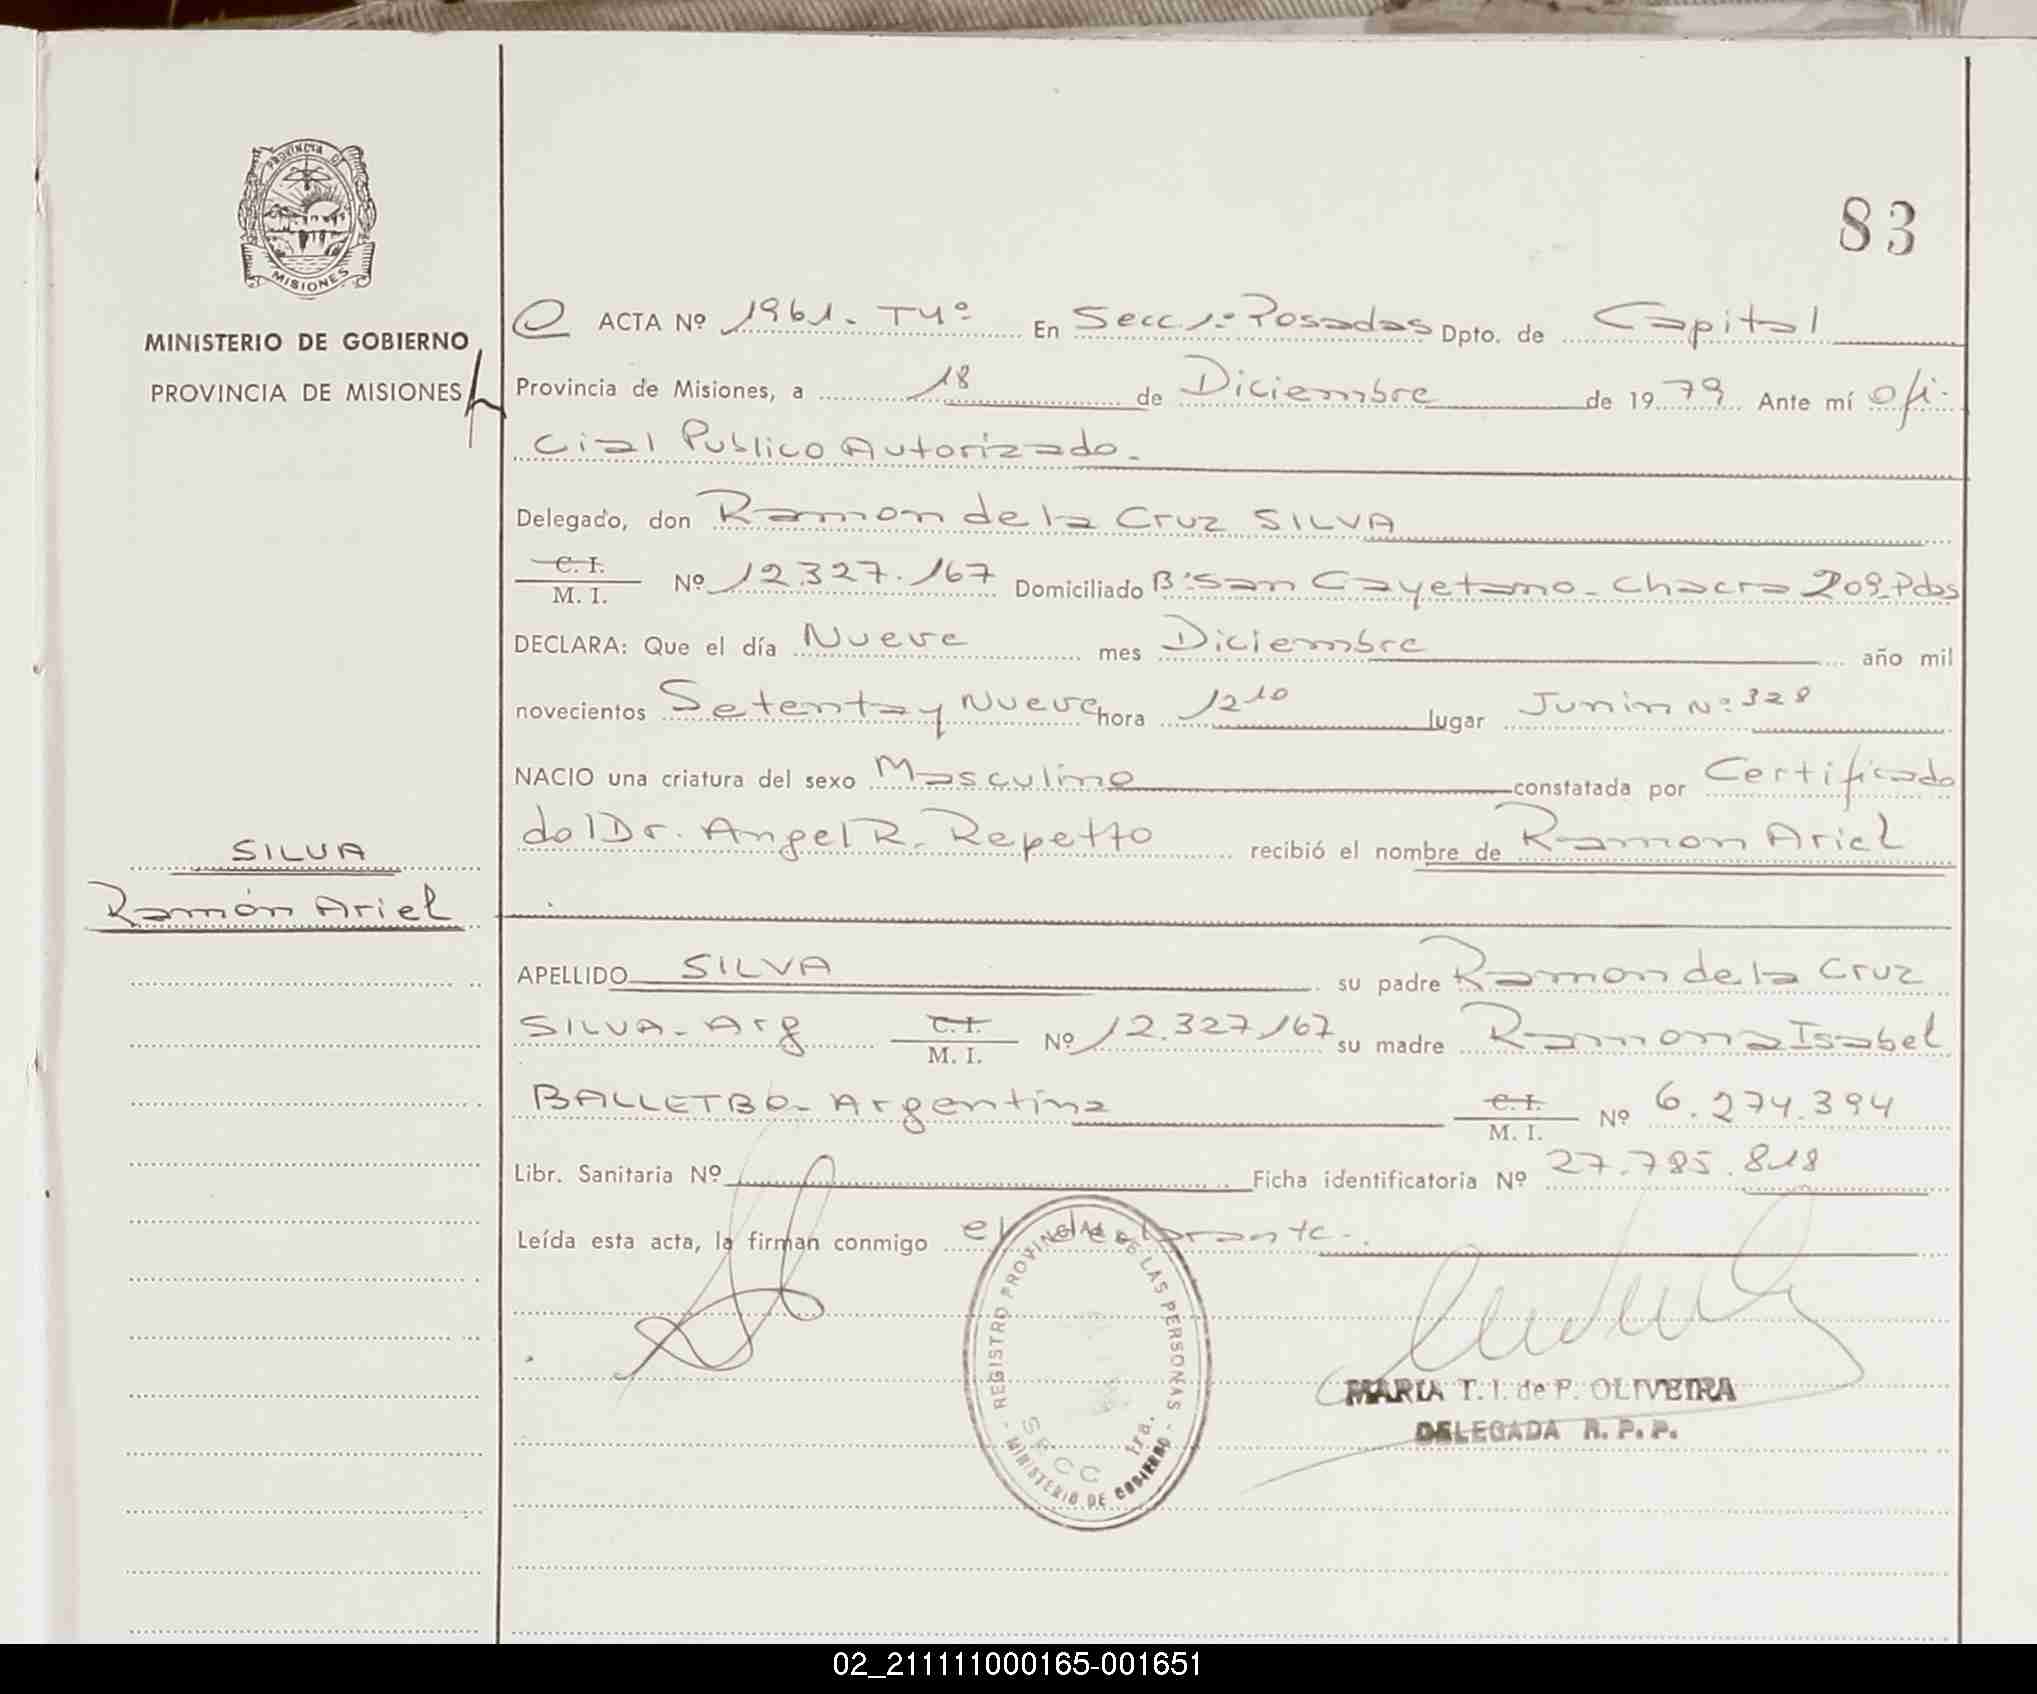 83
PROVINCIA DE
MISIONES
MINISTERIO DE GOBIERNO
PROVINCIA DE MISIONES
ACTA Nº 1961. T4º En Secc 1ª Posadas Dpto. de Capital
Provincia de Misiones, a 18 de Diciembre de 1979 Ante mí Ofi-
cial Publico Autorizado.
Delegado, don Ramon de la Cruz SILVA
C. I.
M. I. Nº 12.327.167 Domiciliado Bº San Cayetano - Chacra 209 Pdas
DECLARA: Que el día Nueve mes Diciembre año mil
novecientos Setenta y Nueve hora 12 10 lugar Junin Nº 328
NACIO una criatura del sexo Masculino constatada por Certificado
del Dr. Angel R. Repetto recibió el nombre de Ramon Ariel
SILVA
Ramón Ariel
APELLIDO SILVA su padre Ramon de la Cruz
SILVA - Arg C. I. M. I. Nº 12.327.167 su madre Ramona Isabel
BALLETBO - Argentina C. I. M. I. Nº 6.274.394
Libr. Sanitaria Nº Ficha identificatoria Nº 27.785.818
Leída esta acta, la firman conmigo el declarante.
REGISTRO PROVINCIAL DE LAS PERSONAS - MINISTERIO DE GOBIERNO -
SECC 1ra.
MARIA T. I. de P. OLIVEIRA
DELEGADA R. P. P.
02_211111000165-001651